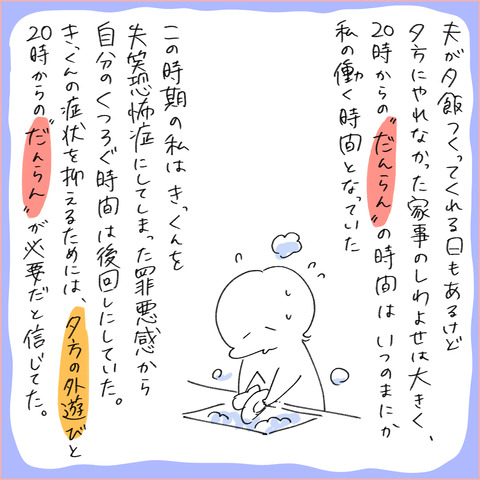 夫が夕飯つくってくれる日もあるけど
夕方にやれなかった家事のしわよせは大きく、
20時からの”だんらん”の時間は いつのまにか
私の働く時間となっていた
この時期の私は きっくんを
失笑恐怖症にしてしまった罪悪感から
自分のくつろぐ時間は後回しにしていた。
きっくんの症状を抑えるためには、夕方の外遊びと
20時からの”だんらん”が必要だと信じてた。